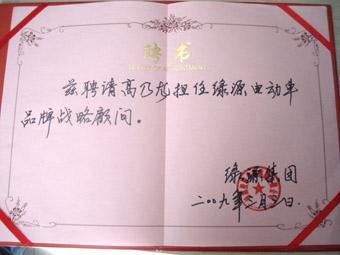 聘书
LETTER OF APPOINTMENT
兹聘请高乃龙担任绿源电动车
品牌战略顾问。
绿源集团
二〇〇九年三月二日.